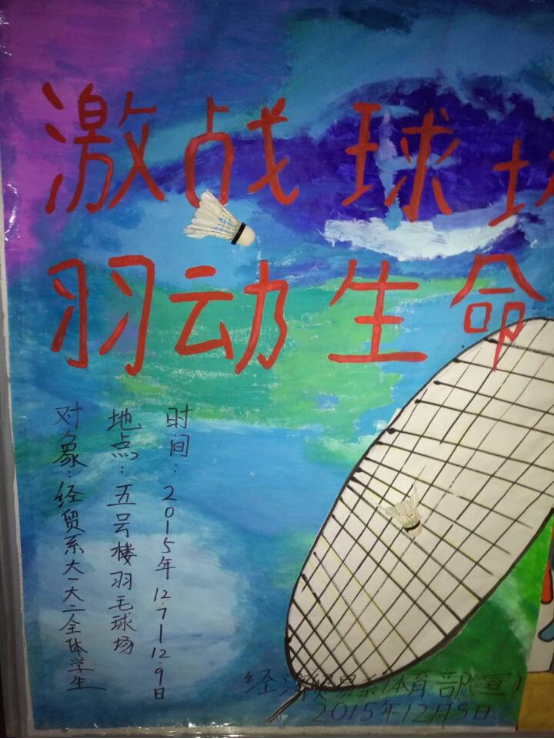 激战球场
羽动生命
时间：2015年12.7—12.9日
地点：五号楼羽毛球场
对象：经贸系大一大二全体学生
经济贸易系体育部(宣)
2015年12月5日